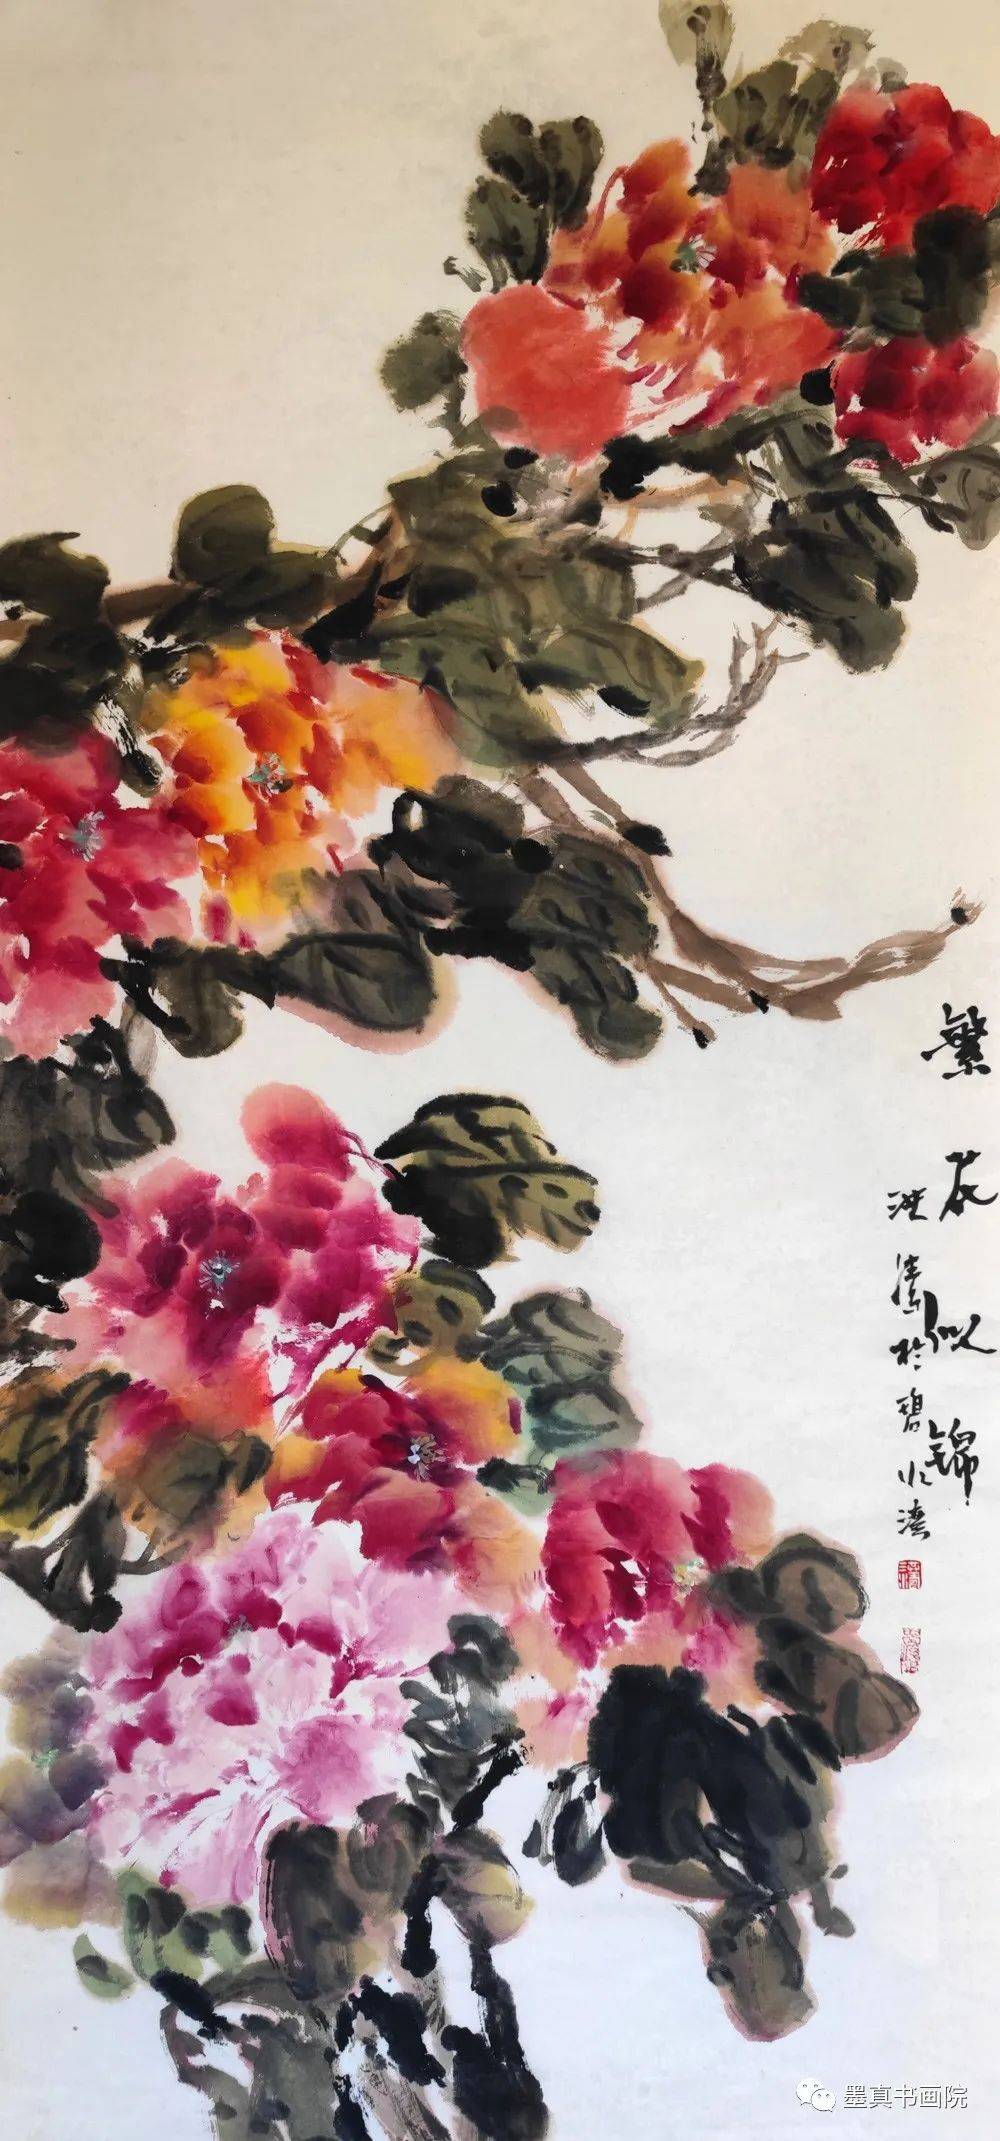 繁花似锦
洪涛於碧水湾
墨真书画院